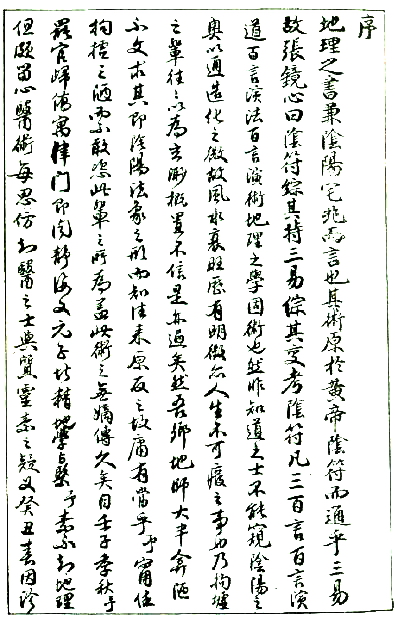 序
地理之書兼陰陽宅兆而言也其術原於黃帝陰符而通乎三易
故張鏡心曰陰符綜其持三易綜其變考陰符凡三百言百言演
道百言演法百言演術地理之學因術也然非知道之士不能窺陰陽之
奧以通造化之微故風水衰旺歷有明徵亦人生不可廢之事也乃拘墟
之輩往之以為玄渺概置不信是亦過矣然吾鄉地師大半弇陋
不文求其即陰陽法象之形而知往來原反之故庸有當乎予甯任
拘墟之陋而不敢恣此輩之所為蓋此術之無嫡傳久矣自壬子季秋予
罷官歸僑寓律门即闻静海文元子塔精地學與醫予素不知地理
但頗留心醫術每思仿知醫之士與質靈素之疑文癸丑春因診